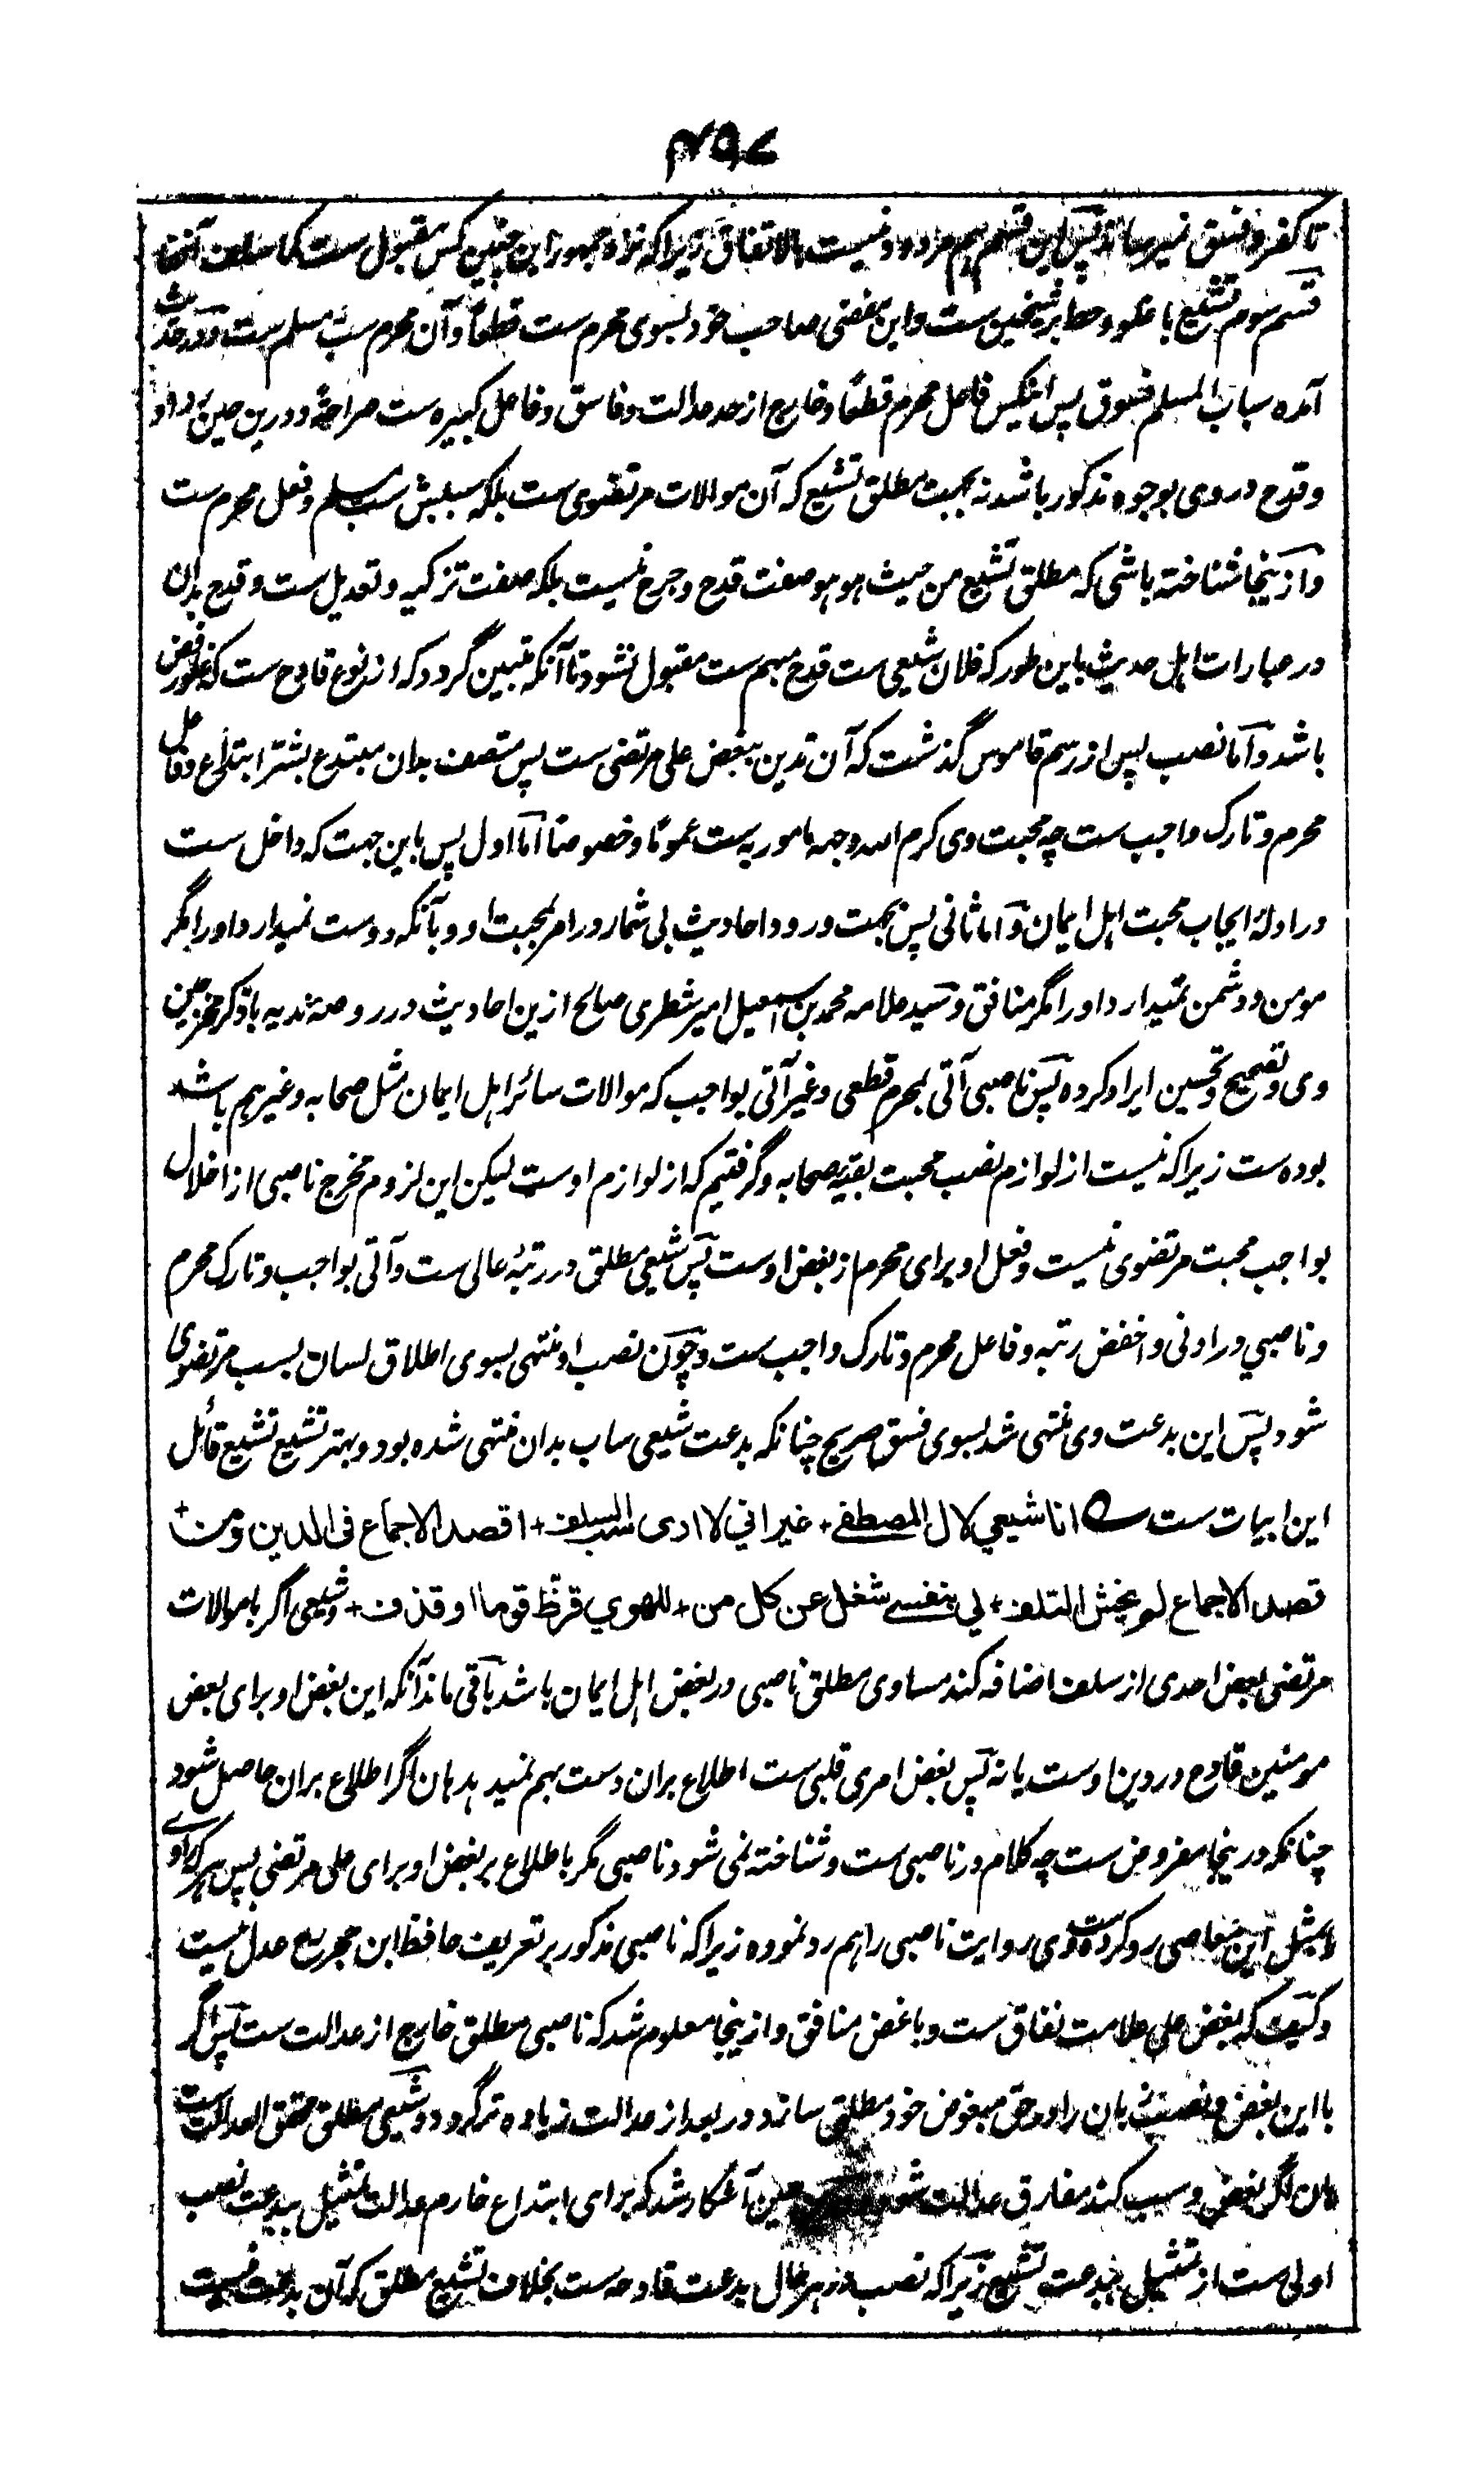 ۴۵۷
تا کفر و فسق نمیرساند پس این قسم هم مردود نیست بالاتفاق زیرا که نزد جمهور این چنین کس مقبول ست کما سلف آنفا
قسم سوم تشیع با غلو و حط بر شیخین ست و این مفضی صاحب خود بسوی محرم ست قطعا و آن محرم سب مسلم ست و در حدیث
آمده سباب المسلم فسوق پس اینکس فاعل محرم قطعا و خارج از حد عدالت و فاسق و فاعل کبیره ست صراحة و درین حین رد او
و قدح در وی بوجوه مذکور باشد نه بجهت مطلق تشیع که آن موالات مرتضوی ست بلکه سببش سب مسلم و فعل محرم ست
و ازینجا شناخته باشی که مطلق تشیع من حیث هو هو صفت قدح و جرح نیست بلکه صفت تزکیه و تعدیل ست و قدح بدان
در عبارات اهل حدیث باین طور که فلان شیعی ست قدح مبهم ست مقبول نشود تا آنکه متبین گردد که از نوع قادح ست که غلو رفض
باشد و اما نصب پس از رسم قاموس گذشت که آن تدین ببغض علی مرتضی ست پس متصف بدان مبتدع بشر ابتداع و فاعل
محرم و تارک واجب ست چه محبت وی کرم الله وجهه مامور به ست عموما و خصوصا اما اول پس باین جهت که داخل ست
در ادلهٔ ایجاب محبت اهل ایمان و اما ثانی پس بجهت ورود احادیث بی شمار در امر بمحبت او و بآنکه دوست نمیدارد او را مگر
مومن و دشمن نمیدارد او را مگر منافق و سید علامه محمد بن اسمعیل امیر شطری صالح ازین احادیث در روضهٔ ندیه با ذکر مخرجین
وی و تصحیح و تحسین ایراد کرده پس ناصبی آتی بمحرم قطعی و غیر آتی بواجب که موالات سائر اهل ایمان مثل صحابه و غیرهم باشد
بوده ست زیرا که نیست از لوازم نصب محبت بقیهٔ صحابه و گرفتیم که از لوازم اوست لیکن این لزوم مخرج ناصبی از اخلال
بواجب محبت مرتضوی نیست و فعل او برای محرم از بغض اوست پس شیعی مطلق در رتبهٔ عالی ست و آتی بواجب و تارک محرم
و ناصبی در ادنی و اخفض رتبه و فاعل محرم و تارک واجب ست و چون نصب او منتهی بسوی اطلاق لسان بسب مرتضوی
شود پس این بدعت وی منتهی شد بسوی فسق صریح چنانکه بدعت شیعی ساب بدان منتهی شده بود و بهتر تشیع تشیع قائل
این ابیات ست انا شیعی لال المصطفی + غیر انی لا اری سب السلف + اقصد الاجماع فی الدین و من +
قصد الاجماع لم یخش التلف + لی بنفسی شغل عن کل من + للهوی قرظ قوما او قذف + و شیعی اگر با موالات
مرتضی بغض احدی از سلف اضافه کند مساوی مطلق ناصبی در بغض اهل ایمان باشد باقی ماند آنکه این بغض او برای بعض
مومنین قادح در دین اوست یا نه پس بغض امری قلبی ست اطلاع بران دست بهم نمیدهد هان اگر اطلاع بران حاصل شود
چنانکه درینجا مفروض ست چه کلام در ناصبی ست و شناخته نمی شود ناصبی مگر باطلاع بر بغض او برای علی مرتضی پس هر که راوی
را بمثل این معاصی رد کرده ست وی روایت ناصبی را هم رد نموده زیرا که ناصبی مذکور بر تعریف حافظ ابن حجر رح عدل نیست
و کیف که بغض علی علامت نفاق ست و باغض منافق و ازینجا معلوم شد که ناصبی مطلق خارج از عدالت ست پس اگر
با این بغض و نصب زبان را در حق مبغوض خود مطلق سازد در بعد از عدالت زیاده تر گردد و شیعی مطلق محقق العدالت ست
هان اگر بغض و سب کند مفارق عدالت شود حین آشکار شد که برای ابتداع خارم عدالت تمثیل ببدعت نصب
اولی ست از تمثیل ببدعت تشیع زیرا که نصب در هر حال بدعت قادحه ست بخلاف تشیع مطلق که آن بدعت نیست